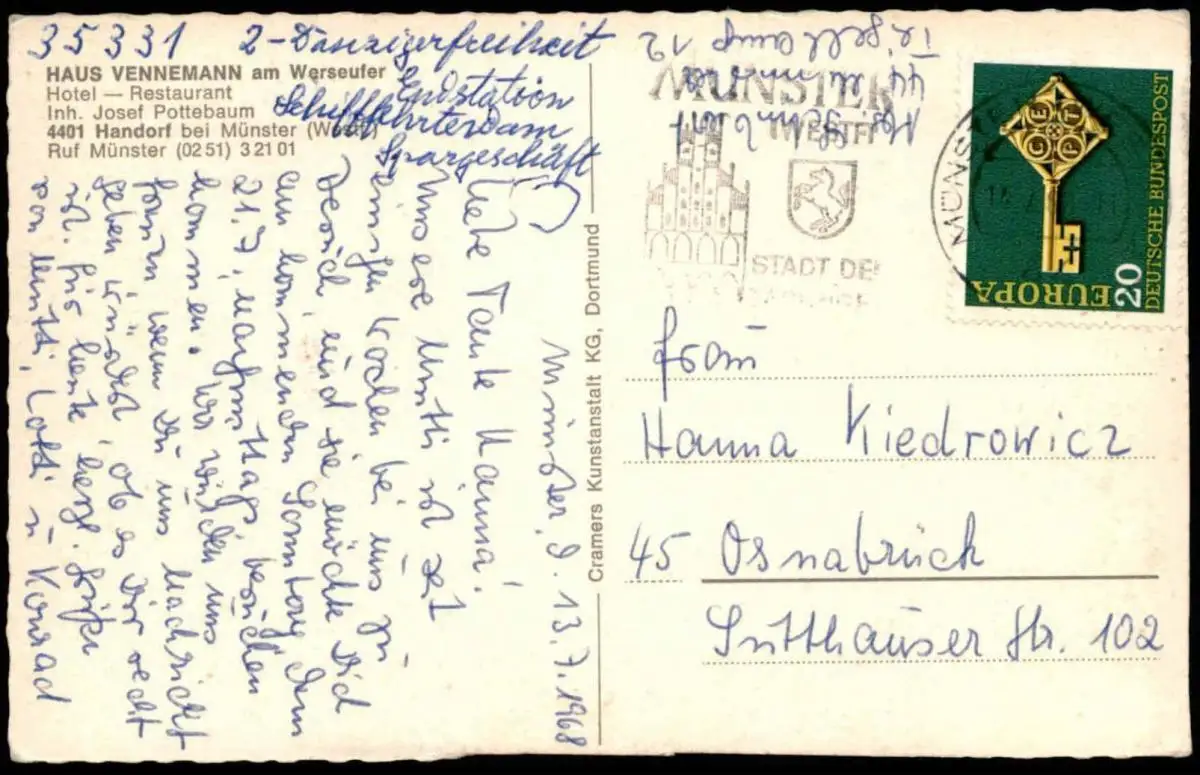 35331 2-Danzigerfreiheit
Endstation
Schiffahrterdam
Spargeschäft
HAUS VENNEMANN am Werseufer
Hotel — Restaurant
Inh. Josef Pottebaum
4401 Handorf bei Münster
Ruf Münster (02 51) 3 21 01
Münster, d. 13.7.1968
Liebe Tante Hanna!
Unsere Mutti ist zt
einigen Wochen bei uns zu
Besuch, und sie möchte Dich
am kommenden Sonntag, dem
21.7. nachmittags besuchen
kommen. Wir würden uns
freuen wenn Du uns Nachricht
geben würdest, ob es Dir recht
ist. Für heute herzl. Grüße
von Mutti, Lotti u. Konrad
Cramers Kunstanstalt KG, Dortmund
44 Münster
12
MÜNSTER
STADT DE
MÜNST
EUROPA
20
DEUTSCHE BUNDESPOST
CEPT
Frau
Hanna Kiedrowicz
45 Osnabrück
Sutthauser Str. 102